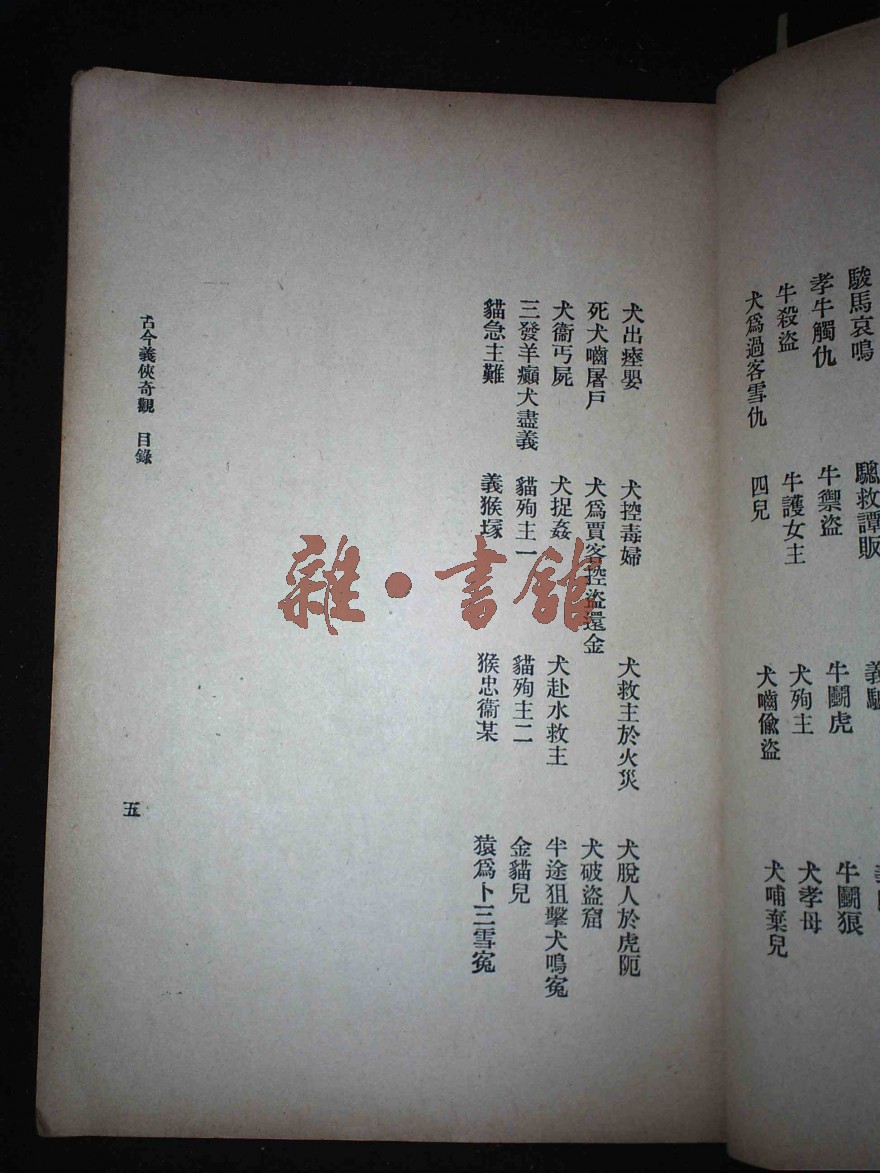 駿馬哀鳴 驄救譚販
孝牛觸仇 牛禦盜 牛鬭虎 牛鬭狼
牛殺盜 牛護女主 犬殉主 犬孝母
犬爲過客雪仇 四兒 犬嚙偸盜 犬哺棄兒
犬出瘞嬰 犬控毒婦 犬救主於火災 犬脫人於虎阨
死犬嚙屠戶 犬爲賈客控盜還金 犬破盜窟
犬衞丐屍 犬捉姦 犬赴水救主 半途狙擊犬鳴寃
三發羊癲犬盡義 貓殉主一 貓殉主二 金貓兒
貓急主難 義猴塚 猴忠衞某 猿爲卜三雪寃
古今義俠奇觀 目錄
五
雜·書館